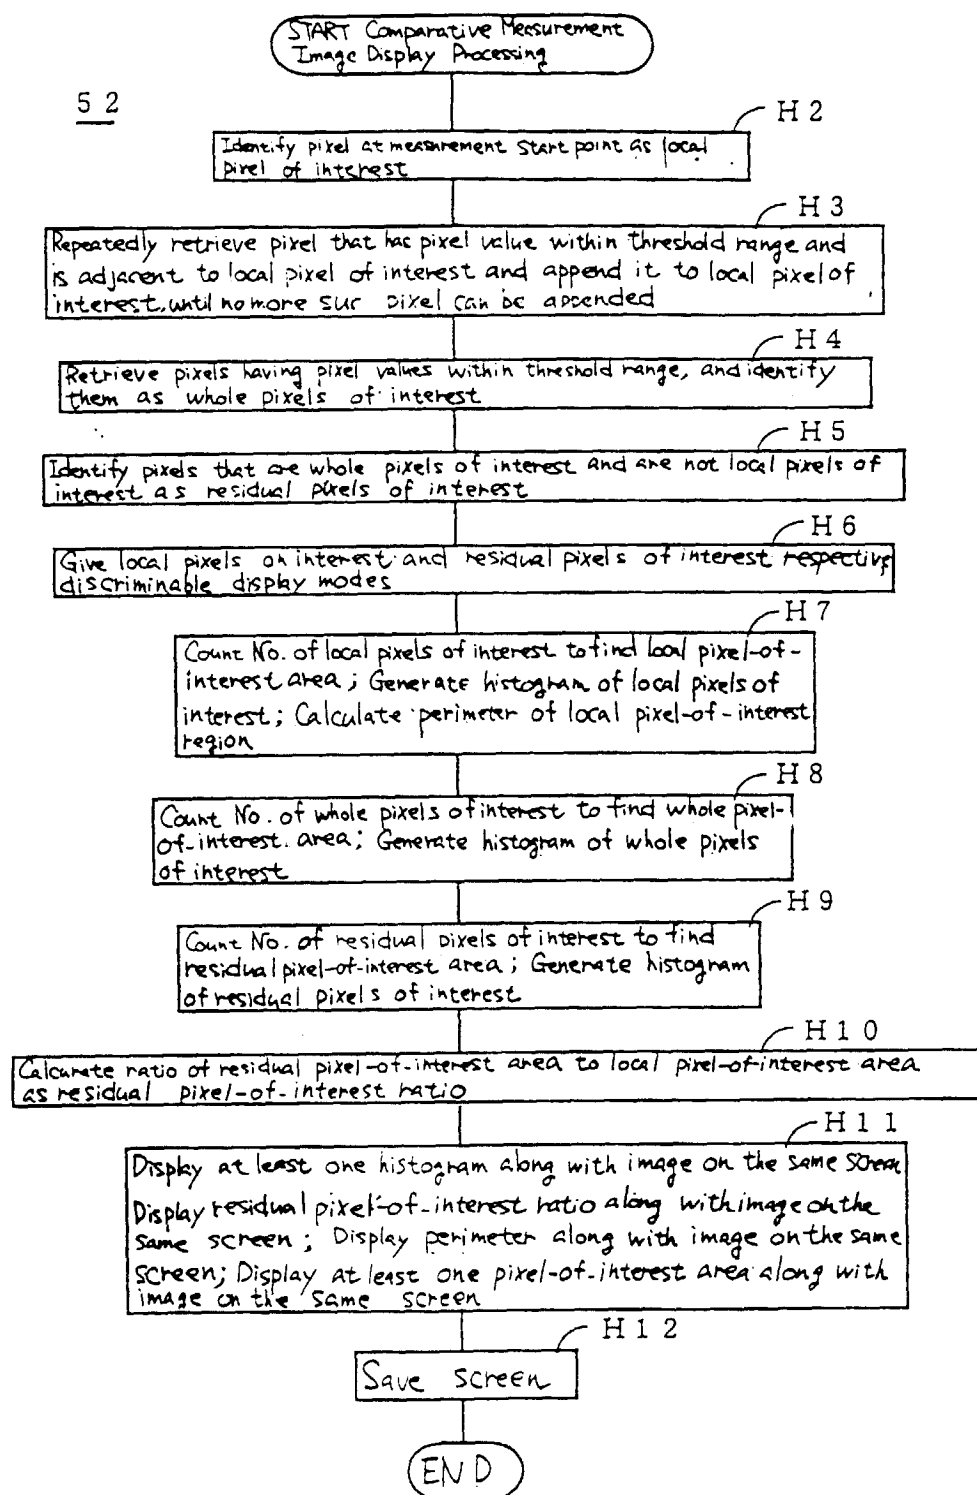 START Comparative Measurement
Image Display Processing
52
H2
Identify pixel at measurement start point as local
pixel of interest
H3
Repeatedly retrieve pixel that has pixel value within threshold range and
is adjacent to local pixel of interest and append it to local pixel of
interest, until no more sur pixel can be appended
H4
Retrieve pixels having pixel values within threshold range, and identify
them as whole pixels of interest
H5
Identify pixels that are whole pixels of interest and are not local pixels of
interest as residual pixels of interest
H6
Give local pixels on interest and residual pixels of interest respective
discriminable display modes
H7
Count No. of local pixels of interest to find local pixel-of-
interest area; Generate histogram of local pixels of
interest; Calculate perimeter of local pixel-of-interest
region
H8
Count No. of whole pixels of interest to find whole pixel-
of-interest area; Generate histogram of whole pixels
of interest
H9
Count No. of residual pixels of interest to find
residual pixel-of-interest area; Generate histogram
of residual pixels of interest
H10
Calcurate ratio of residual pixel-of-interest area to local pixel-of-interest area
as residual pixel-of-interest ratio
H11
Display at least one histogram along with image on the same screen
Display residual pixel-of-interest ratio along with image on the
same screen; Display perimeter along with image on the same
screen; Display at least one pixel-of-interest area along with
image on the same screen
H12
Save screen
END